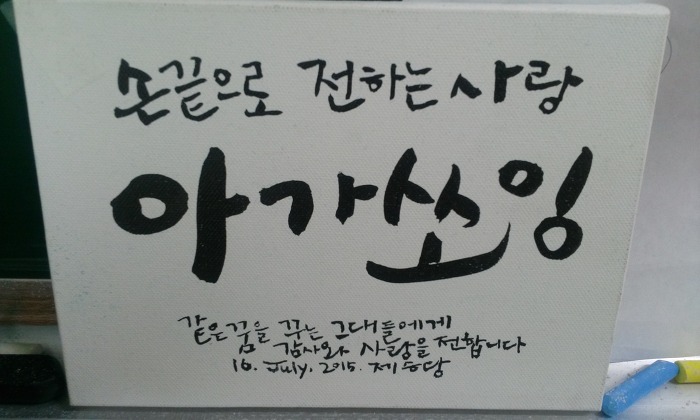 손끝으로 전하는 사랑
아가쏘잉
같은 꿈을 꾸는 그대들에게
감사와 사랑을 전합니다
16. July. 2015.